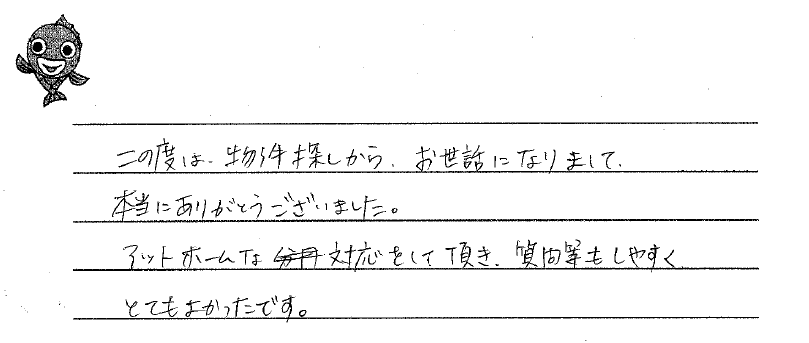 この度は、物件探しから、お世話になりまして、
本当にありがとうございました。
アットホームな対応をして頂き、質問等もしやすく
とてもよかったです。